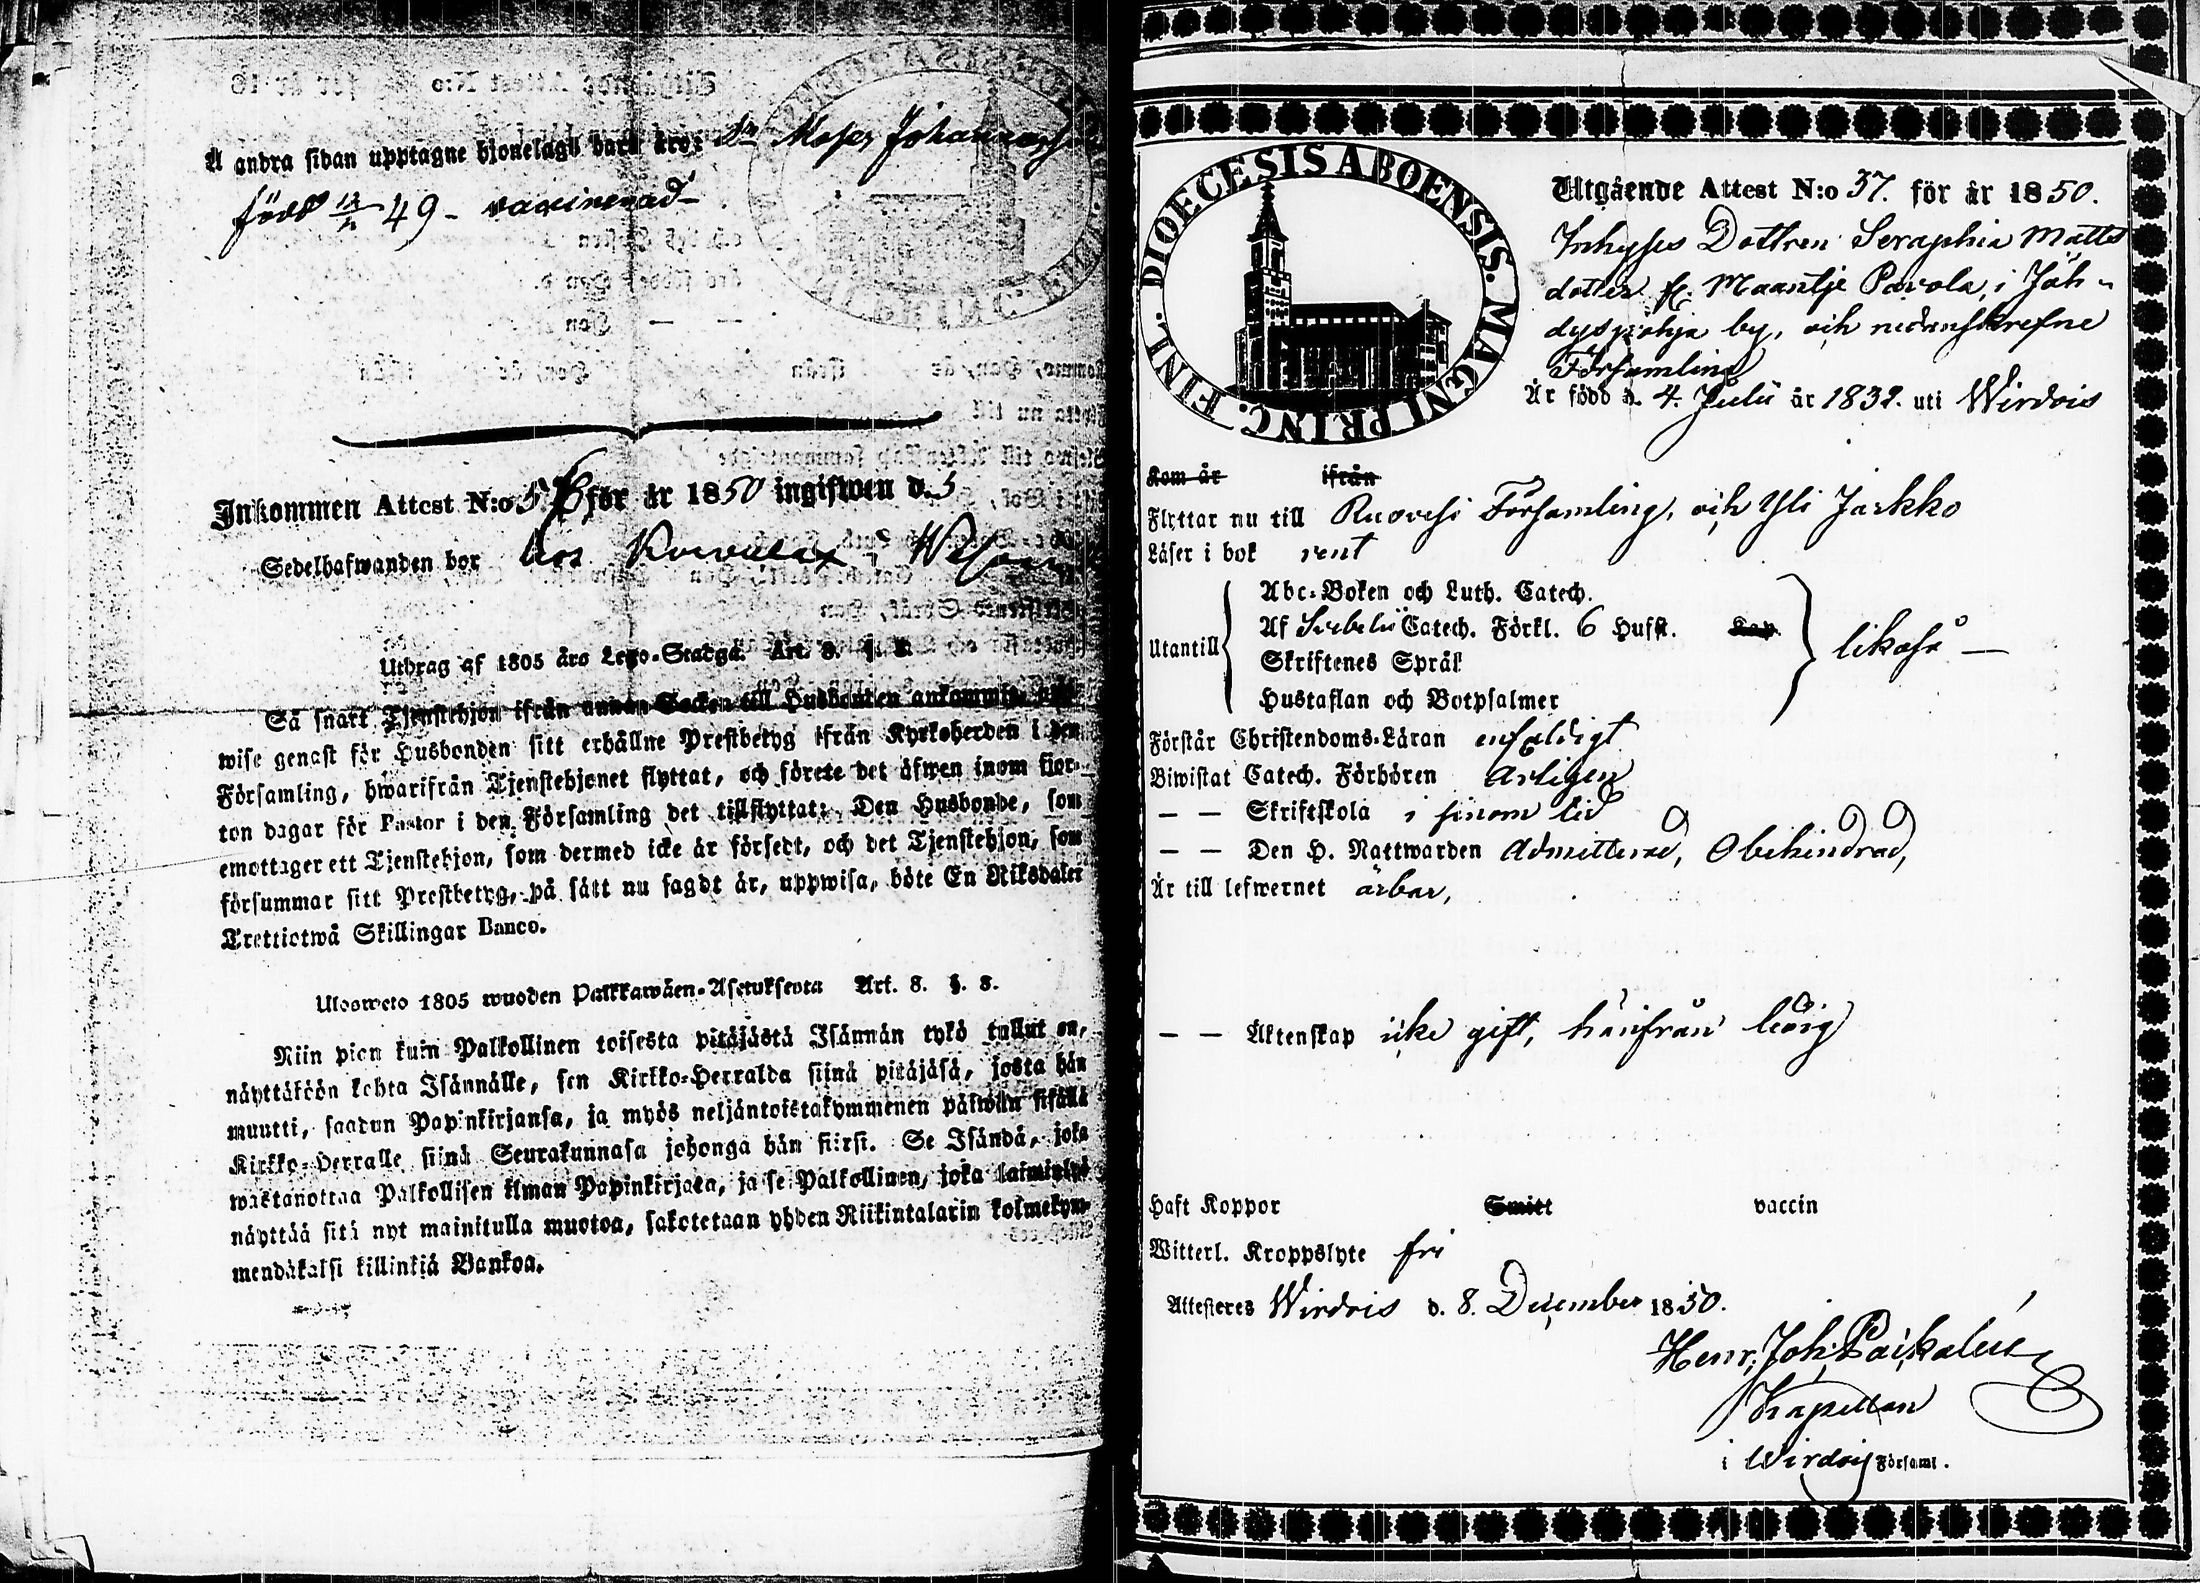 Å andra sidan upptagne hjonelags barn äro: Sn Moses Johannesson
född 12/2 49 - vaccinerad -
Inkommen Attest N:o 5 för år 1850 ingifwen d. 5
Sedelhafwanden bor hos
Utdrag af 1805 års Lego-Stadga. Art. 8. §. 8.
Så snart Tjenstehjon ifrån annan Socken till Husbonden ankommit,
wise genast för Husbonden sitt erhållne Prestbetyg ifrån Kyrkoherden i den
Församling, hwarifrån Tjenstehjonet flyttat, och förete det äfwen inom fjor-
ton dagar för Pastor i den Församling det tillflyttat: Den Husbonde, som
emottager ett Tjenstehjon, som dermed icke är försedt, och det Tjenstehjon, som
försummar sitt Prestbetyg, på sätt nu sagdt är, uppwisa, böte En Riksdaler
Trettiotwå Skillingar Banco.
Ulosweto 1805 wuoden Palkkawäen-Asetuksesta Art. 8. §. 8.
Niin pian kuin Palkollinen toisesta pitäjästä Isännän tykö tullut on,
näyttäköön kohta Isännälle, sen Kirkko-Herralda siinä pitäjäsä, josta hän
muutti, saadun Papinkirjansa, ja myös neljäntoistakymmenen päiwän sisällä
Kirkko-Herralle siinä Seurakunnasa johonga hän siirsi. Se Isändä, joka
wastanottaa Palkollisen ilman Papinkirjata, ja se Palkollinen, joka laiminlyö
näyttää sitä nyt mainitulla muotoa, sakotetaan yhden Riikintalarin kolmekym-
mendäkaksi killinkiä Bankoa.
DIOECESIS ABOENSIS. MAGNI PRINC. FINL.
Utgående Attest N:o 37. för år 1850.
Inhyses Dottren Seraphia Matts
dotter fr. Maantje Pavola, i Jäh-
dyspohja by, och nedanskrefne
Församling
Är född d. 4. Julii år 1832. uti Wirdois
Kom år ifrån
Flyttar nu till Ruovesi Församling, och Yli Jarkko
Läser i bok rent
Abc-Boken och Luth. Catech.
Af Svebelii Catech. Förkl. 6 Hufst. Kap.
Utantill likaså —
Skriftenes Språk
Hustaflan och Botpsalmer
Förstår Christendoms-Läran enfaldigt
Biwistat Catech. Förhören Årligen
— — Skriftskola i sinom tid
— — Den H. Nattwarden Admitterad, Obehindrad,
Är till lefwernet ärbar,
— — Äktenskap icke gift, härifrån ledig
Haft Koppor Smitt vaccin
Witterl. Kroppslyte fri
Attesteres Wirdois d. 8. December 1850.
Henr. Joh.
Kapellan
i Wirdois Församl.